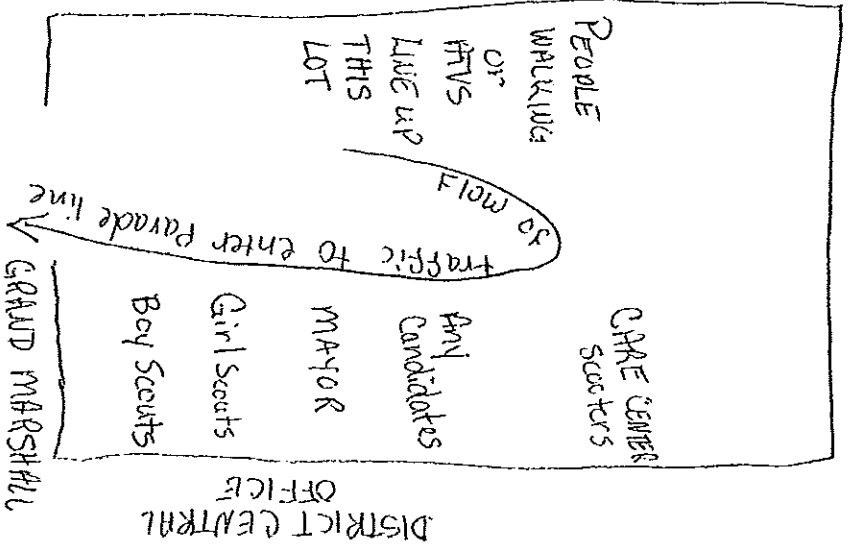 PEOPLE
WALKING
or
ATVS
LINE UP
THIS
LOT
Flow of traffic to enter Parade line
CARE CENTER
Scooters
Any
Candidates
MAYOR
Girl Scouts
Boy Scouts
GRAND MARSHALL
DISTRICT CENTRAL
OFFICE